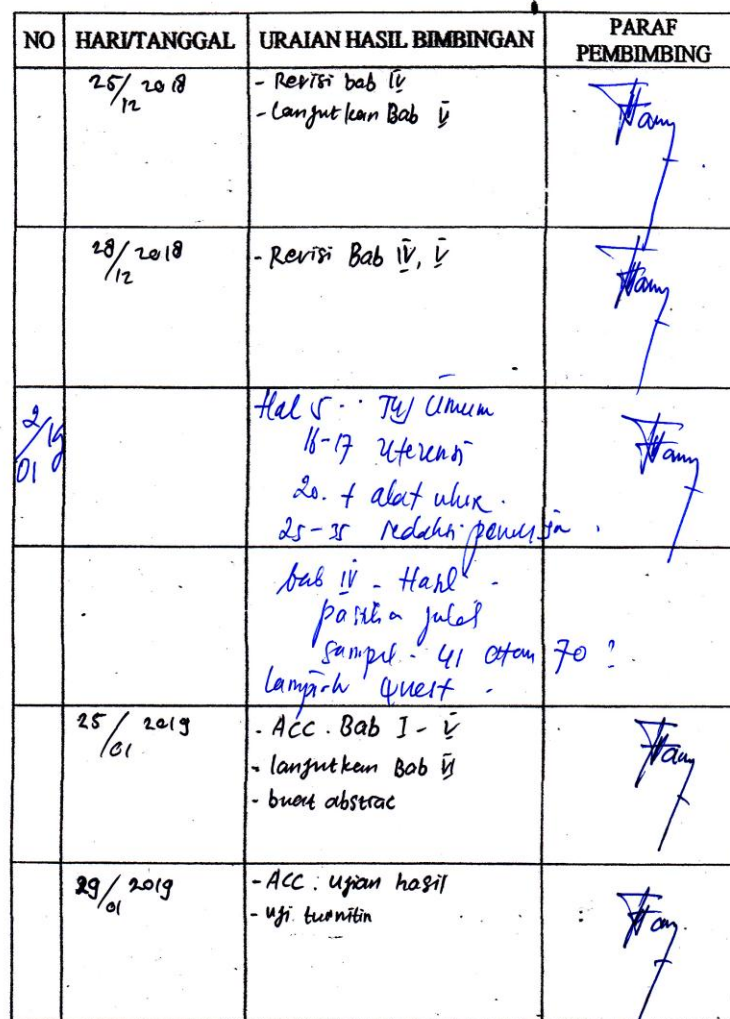 NO HARI/TANGGAL URAIAN HASIL BIMBINGAN PARAF PEMBIMBING
25/12 2018 - Revisi bab IV
- Lanjutkan Bab V
28/12 2018 - Revisi Bab IV, V
2/19 01 Hal 5 - Tuj Umum
16-17
20. + alat ukur.
25-35 redaksi
bab IV - Hasil -
sampel - 41 atau 70 ?
Quest -
25/01 2019 - ACC. Bab I - V
- lanjutkan Bab VI
- buat abstrac
29/01 2019 - ACC. ujian hasil
- uji turnitin